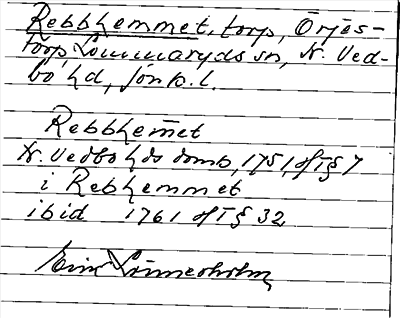 Rebbhemmet, torp, Örjes-
torp, Lommaryds sn, N. Ved-
bo hd, Jönk. l.
Rebbhem̅et
N. Vedbo hds domb, 1751, ofT § 7
i Rebhemmet
ibid 1761 ofT § 32
Linnerholm